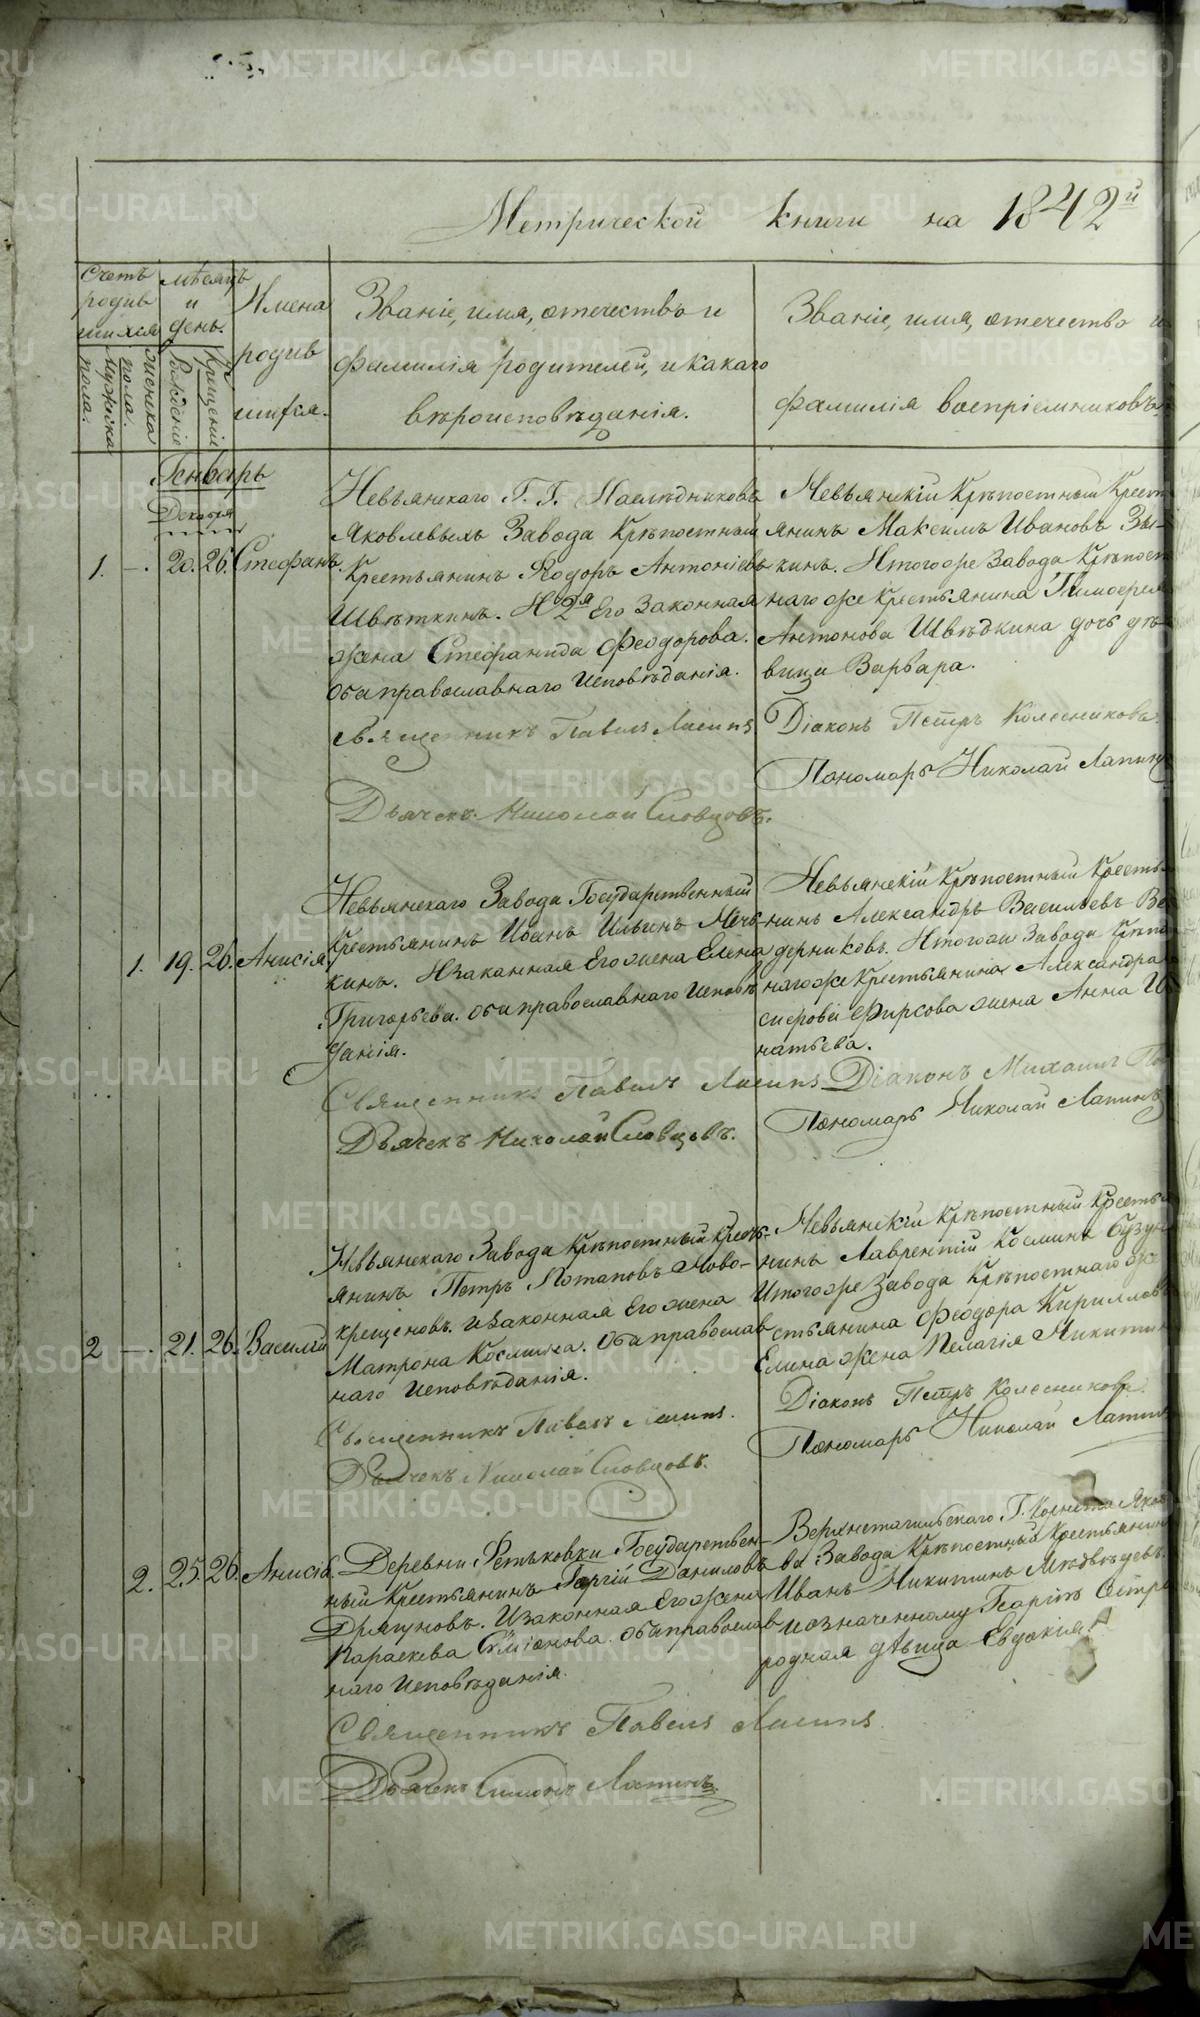 METRIKI.GASO-URAL.RU
Метрической книги на 1842й
Счетъ родив шихся
мужска пола.
женска пола.
Мѣсяцъ и день.
Рожденіе
Крещеніе
Имена родив шихся.
Званіе, имя, отечество и
фамилія родителей, и какаго
вѣроисповѣданія.
Званіе, имя, отечество и
фамилія воспріемниковъ
Генварь
Декабря
1. — 20. 26. Стефанъ.
Невьянскаго Г. Г. Наслѣдниковъ
Яковлевыхъ Завода Крѣпостный
Крестьянинъ Ѳедоръ Антоніевъ
Швѣткинъ. И 2я Его Законная
жена Стефанида Феодорова.
оба православнаго Исповѣданія.
Священникъ Павелъ
Дьячекъ Николай Словцовъ.
Невьянскій Крѣпостный Крест
янинъ Максимъ Ивановъ Зы-
кинъ. Итогоже Завода Крѣпост
наго же Крестьянина Тимоѳея
Антонова Швѣдкина дочь дѣ-
вица Варвара.
Діаконъ Петръ Колесниковъ.
Пономарь Николай Лапинъ
1. 19. 26. Анисія.
Невьянскаго Завода Государственный
Крестьянинъ Иванъ Ильинъ Мечь-
кинъ. И законная Его жена Елена
Григорьева. оба православнаго Исповѣ
данія.
Священникъ Павелъ
Дьячекъ Николай Словцовъ.
Невьянскій Крѣпостный Кресть-
нинъ Александръ Васильевъ Ве
дерниковъ. Итогоже Завода Крѣпо
нагоже Крестьянина Александра
Фирсова жена Анна Иг
натьева.
Діаконъ Михаилъ По
Пономарь Николай Лапинъ
2 — 21. 26. Василій
Невьянскаго Завода Крѣпостный Кресть-
янинъ Петръ Потаповъ Ново-
крещеновъ. изаконная Его жена
Матрона Космина. Оба православ
наго Исповѣданія.
Священникъ Павелъ
Дьячекъ Николай Словцовъ.
Невьянскій Крѣпостный Кресть
нинъ Лаврентій Косминъ
Итогоже Завода Крѣпостнаго же
стьянина Феодора Кириллова
Елина жена Пелагія Никитин
Діаконъ Петръ Колесниковъ.
Пономарь Николай Лапинъ
2. 25. 26. Анисія.
Деревни Фетьковки Государствен-
ный Крестьянинъ Георгій Даниловъ
Драгуновъ. Изаконная Его Жена
Параскева Симіонова. Оба православ
наго Исповѣданія.
Священникъ Павелъ
Дьячекъ Симонъ Лапинъ.
Верхнетагильскаго Г. Корнета Яков
ва Завода Крѣпостный Крестьянин
Иванъ Никитинъ Медвѣдевъ.
иозначенному Георгію Сестра
родная дѣвица Евдокія.